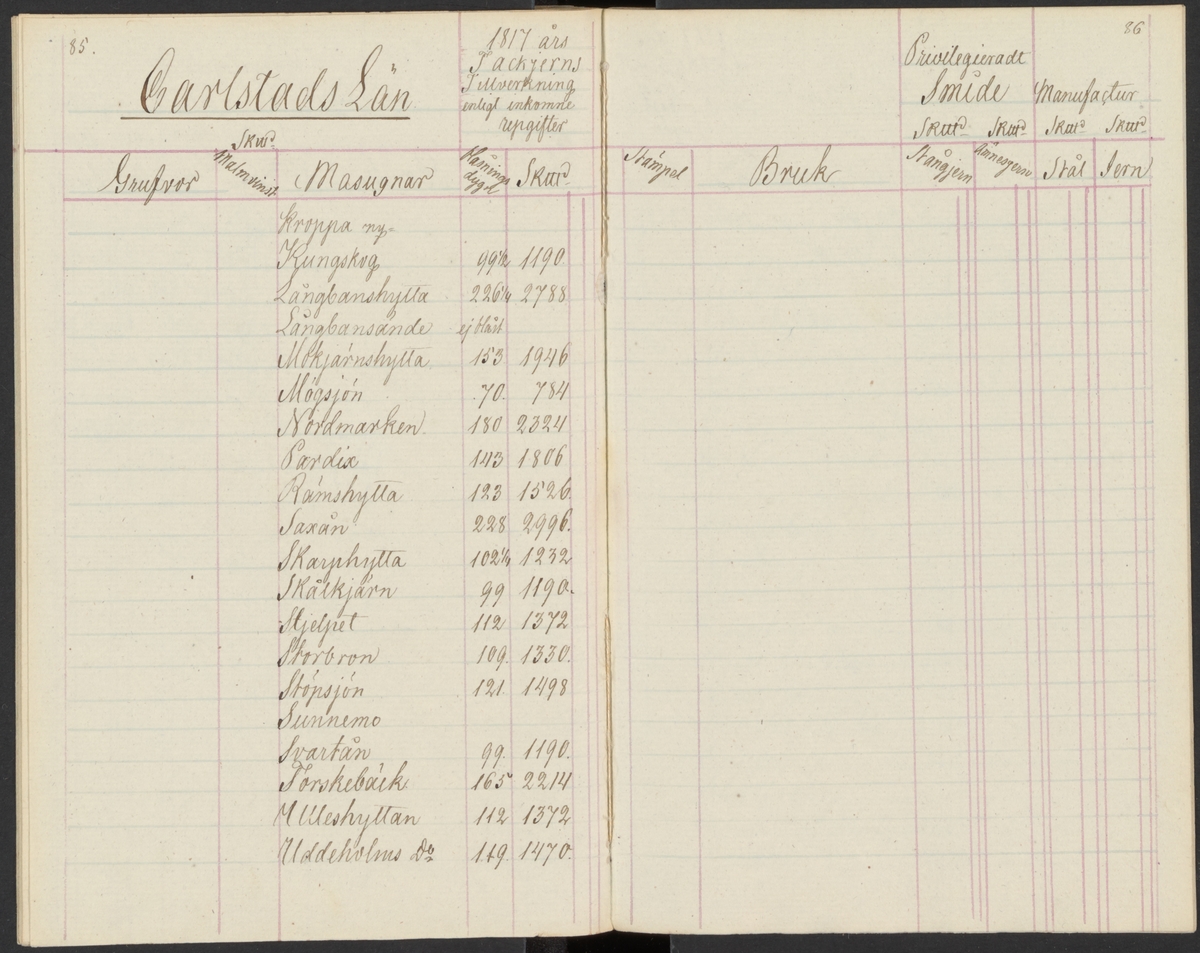 85.
Carlstads Län
1817 års
Tackjerns
Tillverkning
enligt inkomne
upgifter
Skttd
Grufvor Malmvinst Masugnar Blåsnings dygn Skttd
Kroppa ny=
Kungskog 99½ 1190
Långbanshytta 226¼ 2788
Långbansände ej blåst
Mokjärnshytta 153 1946
Mögsjön 70. 784
Nordmarken 180 2324
Pardix 143 1806
Rämshytta 123 1526
Saxån 228 2996.
Skarphytta 102¼ 1232
Skålkjärn 99 1190.
Stjelpet 112 1372
Storbron 109. 1330.
Stöpsjön 121. 1498
Sunnemo
Svartån 99. 1190.
Torskebäck 165 2214
Ulleshyttan 112 1372
Uddeholms Do 119. 1470.
86
Privilegieradt
Smide Manufactur
Skttd Skttd Skttd Skttd
Stämpel Bruk Stångjern Ämnesjern Stål Jern